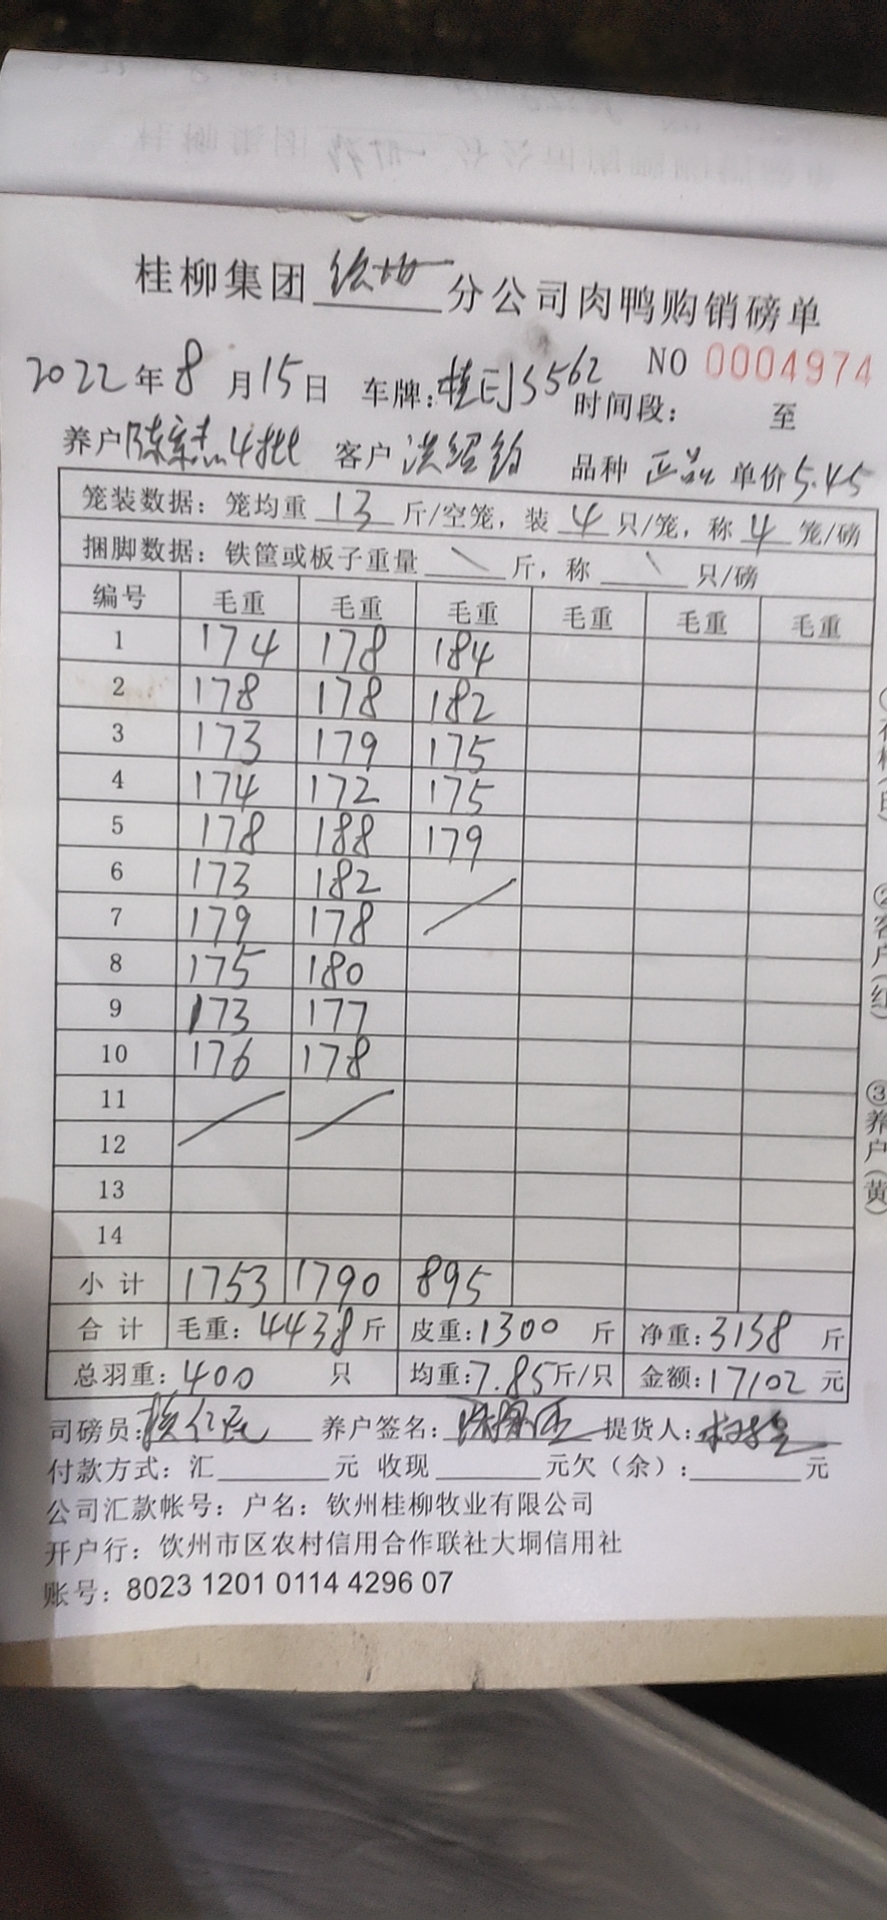 桂柳集团 钦州 分公司肉鸭购销磅单
NO 0004974
2022年8月15日 车牌:桂EJS562 时间段: 至
养户 4批 客户 洪绍钧 品种 正品 单价5.45
笼装数据: 笼均重 13 斤/空笼, 装 4 只/笼, 称 4 笼/磅
捆脚数据: 铁筐或板子重量 \ 斤, 称 \ 只/磅
编号 毛重 毛重 毛重 毛重 毛重 毛重
1 174 178 184
2 178 178 182
3 173 179 175
4 174 172 175
5 178 188 179
6 173 182
7 179 178
8 175 180
9 173 177
10 176 178
11
12
13
14
小计 1753 1790 895
合计 毛重: 4438斤 皮重:1300 斤 净重:3138 斤
总羽重: 400 只 均重:7.85斤/只 金额:17102元
司磅员: 养户签名: 提货人:
付款方式: 汇 元 收现 元欠(余): 元
公司汇款帐号: 户名: 钦州桂柳牧业有限公司
开户行: 饮州市区农村信用合作联社大垌信用社
账号: 8023 1201 0114 4296 07
②客户(红)
③养户(黄)